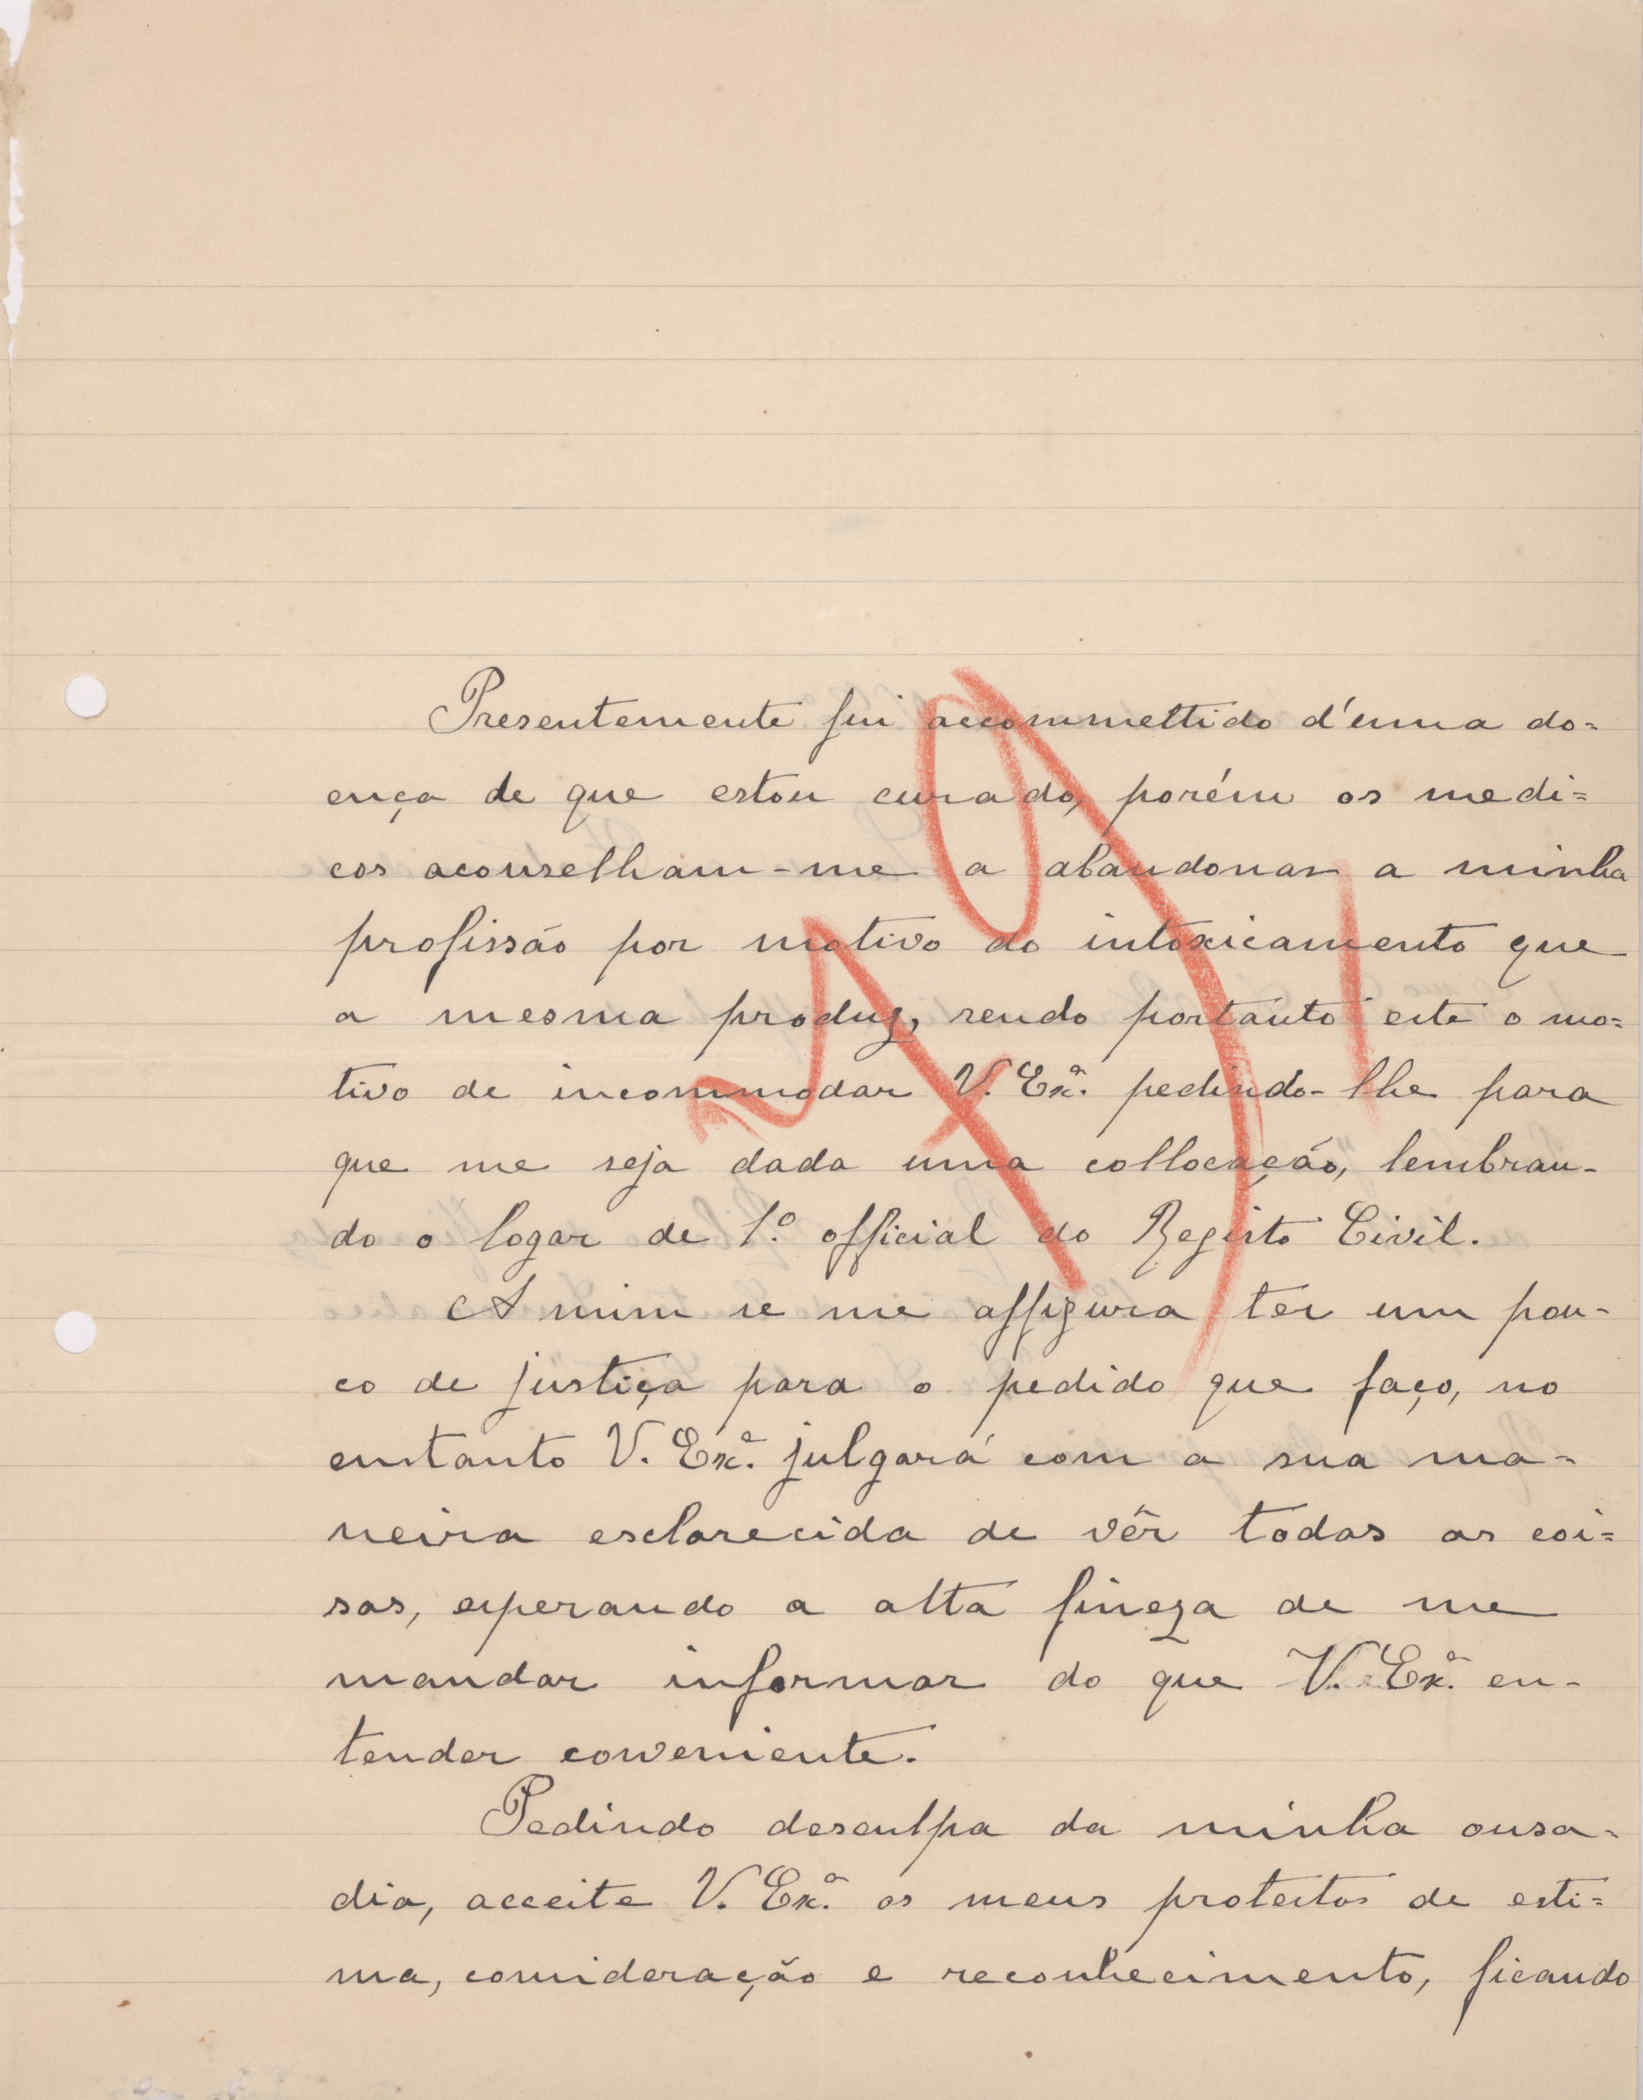 Presentemente fui accommettido d'uma do=
ença de que estou curado, porém os medi=
cos aconselham-me a abandonar a minha
profissão por motivo do intoxicamento que
a mesma produz, sendo portanto este o mo=
tivo de incommodar V. Exª. pedindo-lhe para
que me seja dada uma collocação, lembran-
do o logar de 1.º official do Registo Civil.
A mim se me affigura ter um pou-
co de justiça para o pedido que faço, no
entanto V. Exª. julgará com a sua ma-
neira esclarecida de vêr todas as coi=
sas, esperando a alta fineza de me
mandar informar do que V. Exª. en-
tender conveniente.
Pedindo desculpa da minha ousa-
dia, acceite V. Exª. os meus protestos de esti=
ma, consideração e reconhecimento, ficando